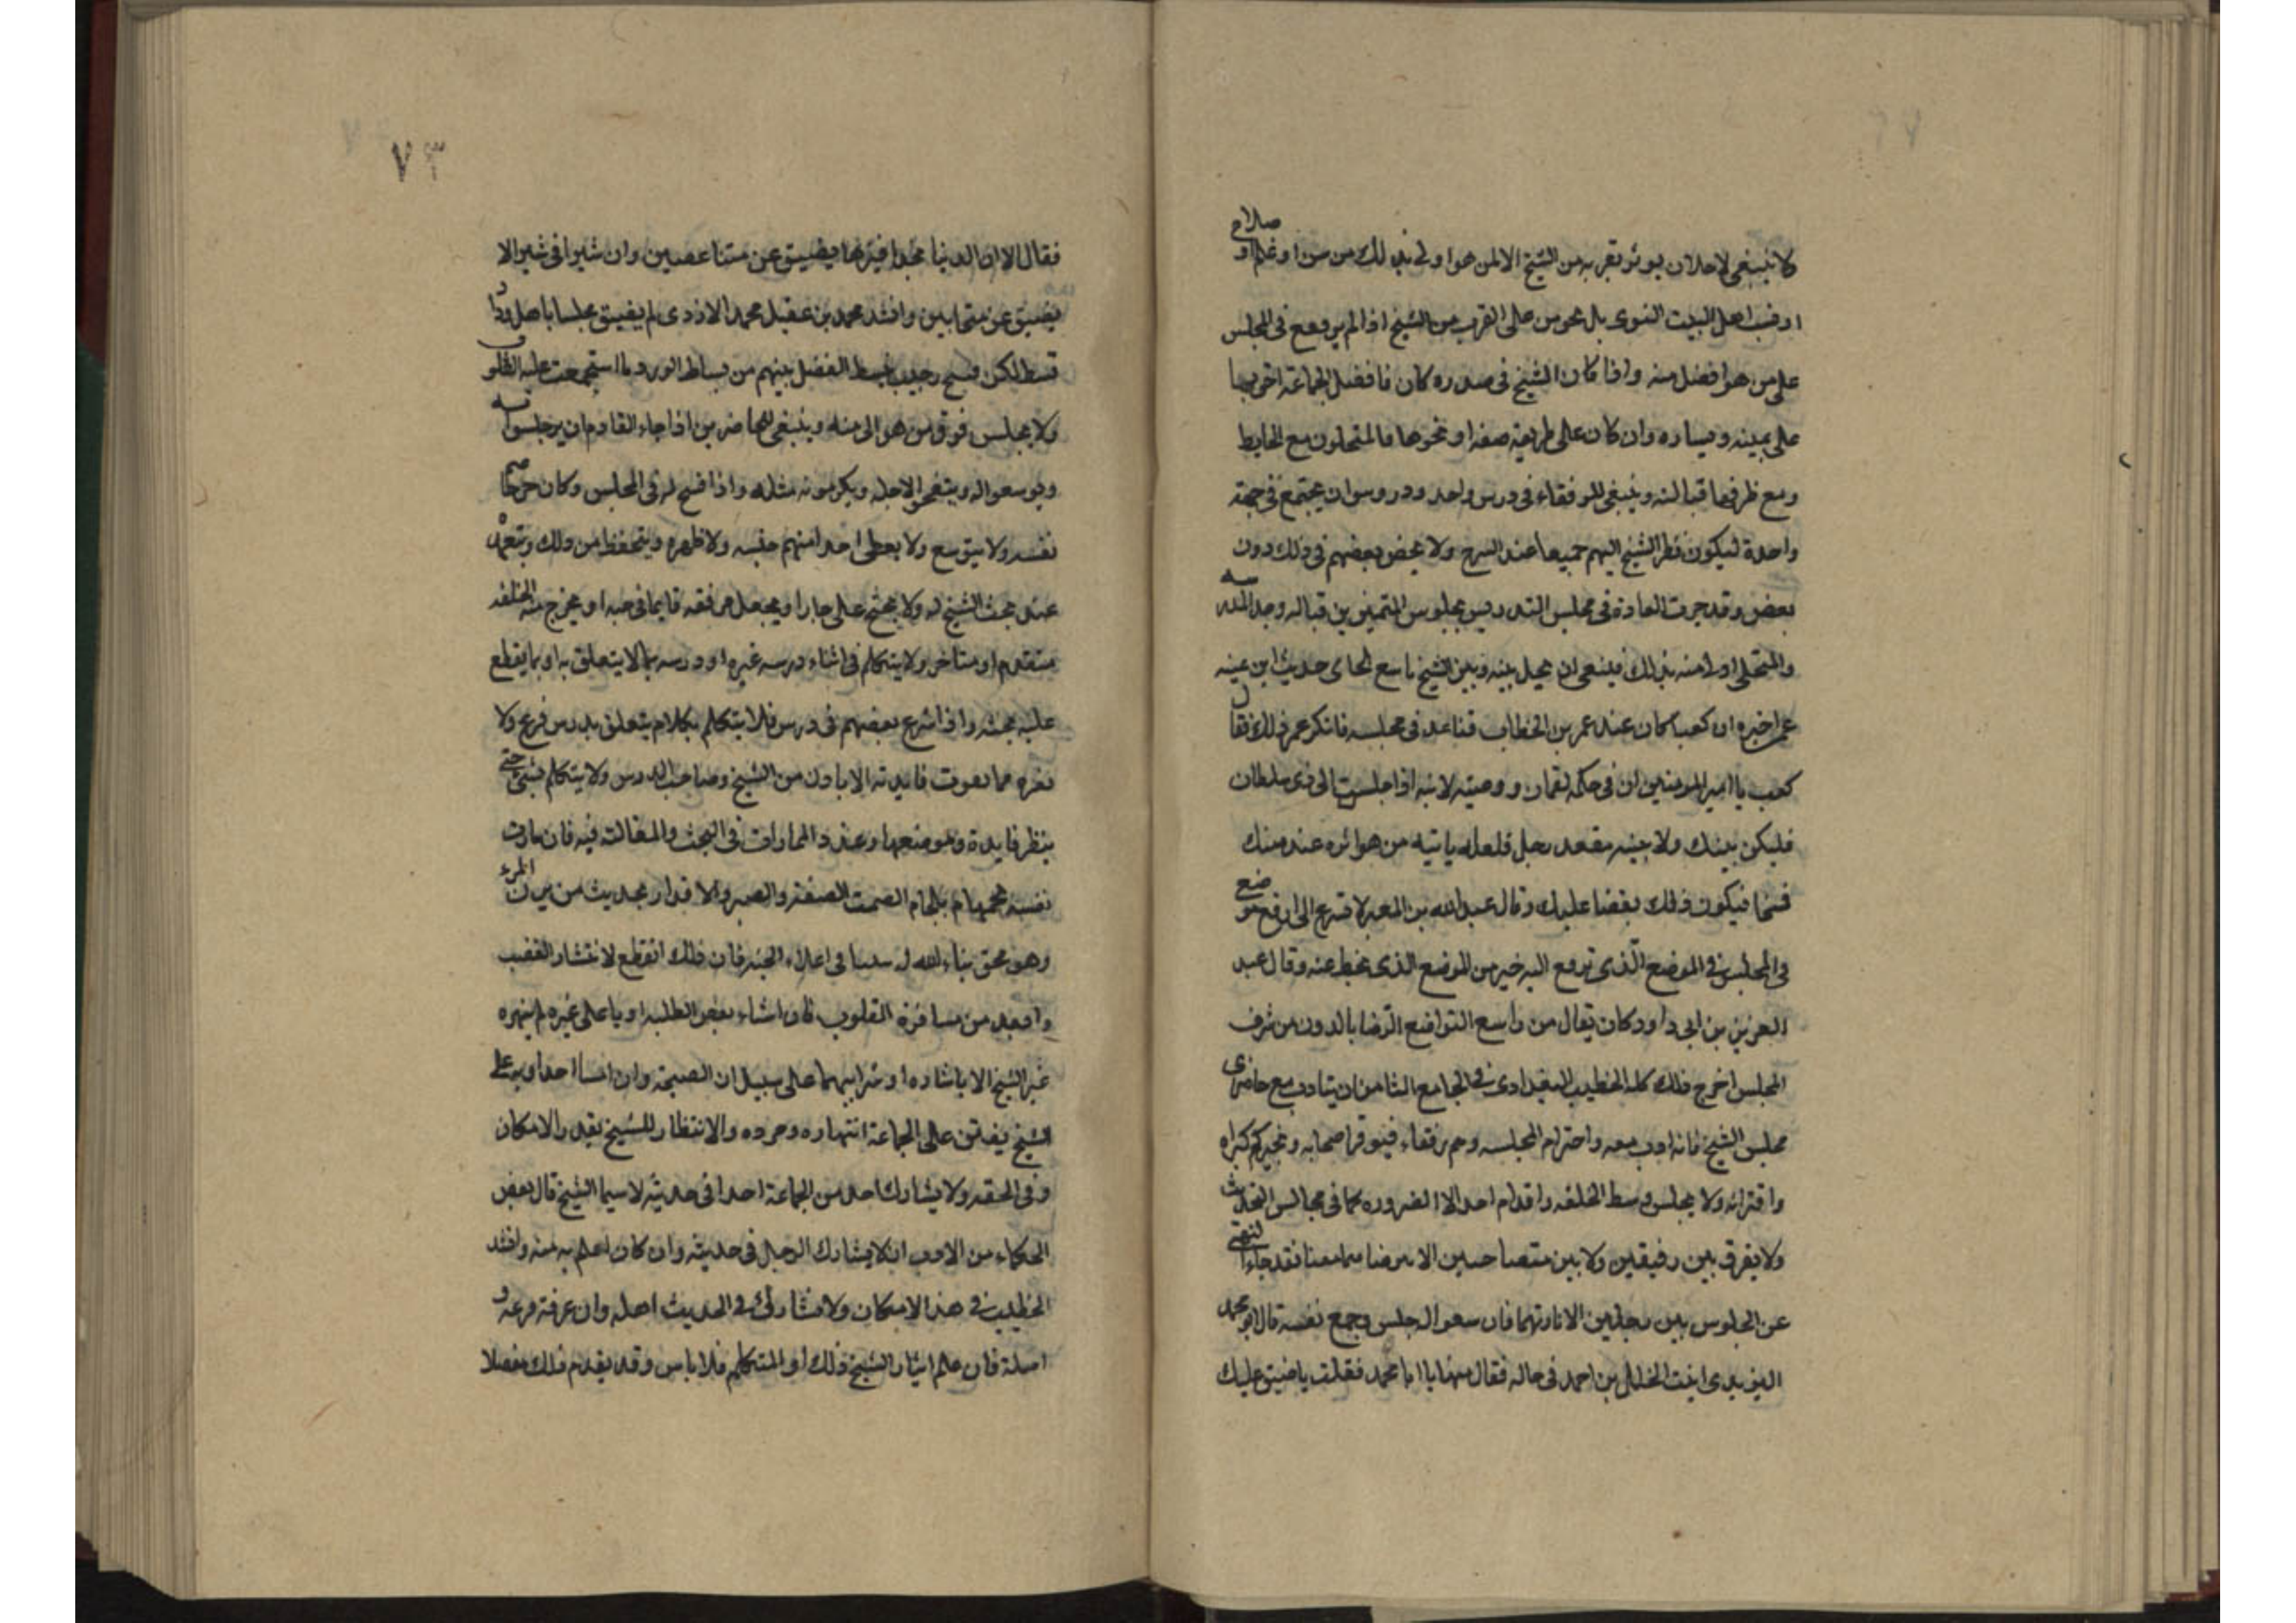 كا ينبغي لاحد ان يوثر تقربه من الشيخ الا لمن هو اولى بذلك من سن او علم او صلاح
او نسب اهل البيت النبوى بل يحرص على القرب من الشيخ اذا لم يرتفع فى المجلس
على من هو افضل منه واذا كان الشيخ فى صدره كان فافضل الجماعة احق بما
على يمينه ويساره وان كان على طريقة صفه او نحوها فالمتجلون مع الحايط
ومع طرفها قبالته وينبغى للرفقاء فى درس واحد ودروس ان يجتمع فى جهة
واحدة ليكون نظر الشيخ اليهم جميعا عند الشرح ولا يخص بعضهم فى ذلك دون
بعض وقد جرت العادة فى مجلس التدريس بجلوس المتميزين قباله وجه المدرسه
والمتجلى اولى منه بذلك فينبغى ان يحيل بينه وبين الشيخ حديث ابن عينه
عمر اخبره ان كعب كان عند عمر بن الخطاب فتباعد فى مجلسه فانكر عمر ذلك فقال
كعب يا امير المومنين ان فى حكمه لقمان ووصيته لابنه اذا جلست الى ذى سلطان
فليكن بينك ولا بينه مقعد رجل فلعله ياتيه من هو اثره عنده منك
فتنحا فيكون ذلك بغضا عليك وقال عبد الله بن المعبر لا تسرع الى ارفع موضع
فى المجلس فى الموضع الذى ترفع اليه خير من الموضع الذى تحط عنه وقال عبد
العزيز بن ابى داود كان يقال من راسع التواضع الرضا بالدون من شرف
المجلس اخرج ذلك كله الخطيب البغدادى فى الجامع الثامن ان يتادب مع حاضرى
مجلس الشيخ فانه ادب معه واحترام المجلسه وهم رفقاء فيوقر اصحابه وكبراه
واقرانه ولا يجلس وسط الحلقه واقدام احد الا الضروره كما فى مجالس التحديث
ولا يفرق بين رفيقين ولا بين متصاحبين الا برضاهما معا فقد جاء النهى
عن الجلوس بين رجلين الا باذنهما فان سعوا له جلس وجمع نفسه قال ابو محمد
اليزيدى اتيت الخليل بن احمد فى حاله فقال ههنا يا ابا محمد فقلت يا ضيق عليك
٧٣
فقال الا ان الدنيا بحذافيرها يضيق عن متباعضين وان شبرا فى شبر الا
يضيق عن متحابين وانشد محمد بن عقيل محمد الازدى لم يضيق مجلسا باهل ودا
قسط لكن فسيح رحيب بسط الفضل بينهم من بساط الورد ما استجمعت عليه القلوب
ولا يجلس فوق من هو الى منه وينبغى للحاضرين اذا جاء القادم ان يرجلسوا به
ويوسعوا له ويتفحوا لاجله ويكرمونه مثله واذا فسح له فى المجلس وكان حرجا ضم
نفسه ولا يتوسع ولا يعطى احدا منهم جنبه ولا ظهره ويتحفظ من ذلك ويتعهده
عند بحث الشيخ له ولا يجنح على جاره او يجعل مرفقه قايما فى جنبه او يخرج من الحلقه
متقدم او متاخر ولا يتكلم فى اثناء درسه غيره او درسه بما لا يتعلق به او بما يقطع
عليه بحثه واذا شرع بعضهم فى درس فلا يتكلم بكلام يتعلق بدرس فرغ ولا
بغيره مما يفوت فايدته الا باذن من الشيخ وصاحب الدرس ولا يتكلم بشئ حتى
ينظر فايدة وموضعها وعند المماراة فى البحث والمغالته فيه فان مارت
نفسه بلجام الصمت والصبر والاقدار بحديث من ترك المراء
وهو محق بناء الله له بيتا فى اعلاء الجنه فان ذلك اقطع لانتشار الغضب
وابعد من منافرة القلوب فان اشاء بعض الطلبه ادبا على غيره لم ينهره
غير الشيخ الا باشاده او سرا بينهما على سبيل ان النصيحة وان اسا احد ادب على
الشيخ يفتن على الجماعة انتهاره ورده والانتظار للشيخ بقدر الامكان
وفى الحقه ولا يشارك احد من الجماعة احدا فى حديثه لا سيما الشيخ قال بعض
الحكماء من الادب ان لا يشارك الرجل فى حديثه وان كان اعلم به منه وانشد
الخطيب فى هذا الامكان ولا تشارك فى الحديث اهله وان عرفة فرعه و
اصلة فان علم ايثار الشيخ ذلك او المتكلم فلا باس وقد تقدم ذلك مفصلا